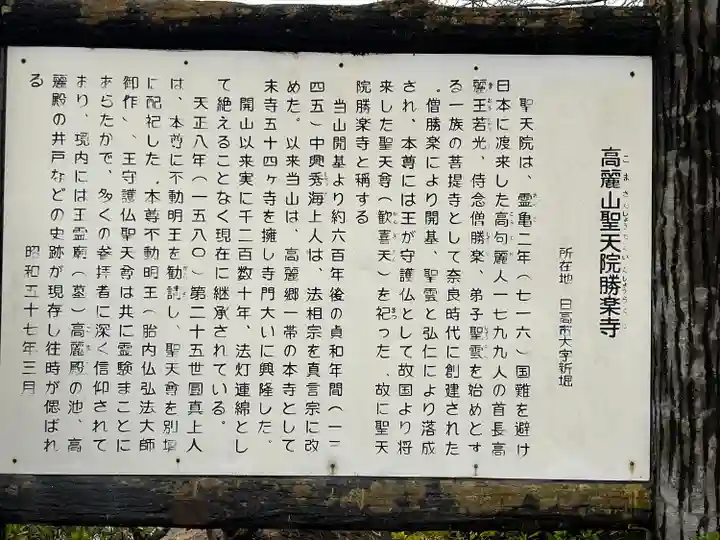 高麗山聖天院勝楽寺
所在地 日高市大字新堀
聖天院は、霊亀二年(七一六)国難を避け
日本に渡来した高句麗人一七九九人の首長高
麗王若光、侍念僧勝楽、弟子聖雲を始めとす
る一族の菩提寺として奈良時代に創建された
。僧勝楽により開基、聖雲と弘仁により落成
され、本尊には王が守護仏として故国より将
来した聖天尊(歓喜天)を祀った、故に聖天
院勝楽寺と称する
当山開基より約六百年後の貞和年間(一三
四五)中興秀海上人は、法相宗を真言宗に改
めた。以来当山は、高麗郷一帯の本寺として
末寺五十四ヶ寺を擁し寺門大いに興隆した。
開山以来実に千二百数十年、法灯連綿とし
て絶えることなく現在に継承されている。
天正八年(一五八〇)第二十五世圓真上人
は、本尊に不動明王を勧請し、聖天尊を別壇
に配祀した.本尊不動明王(胎内仏弘法大師
御作)、王守護仏聖天尊は共に霊験まことに
あらたかで、多くの参拝者に深く信仰されて
おり、境内には王霊廟(墓)高麗殿の池、高
麗殿の井戸などの史跡が現存し往時が偲ばれ
る
昭和五十七年三月